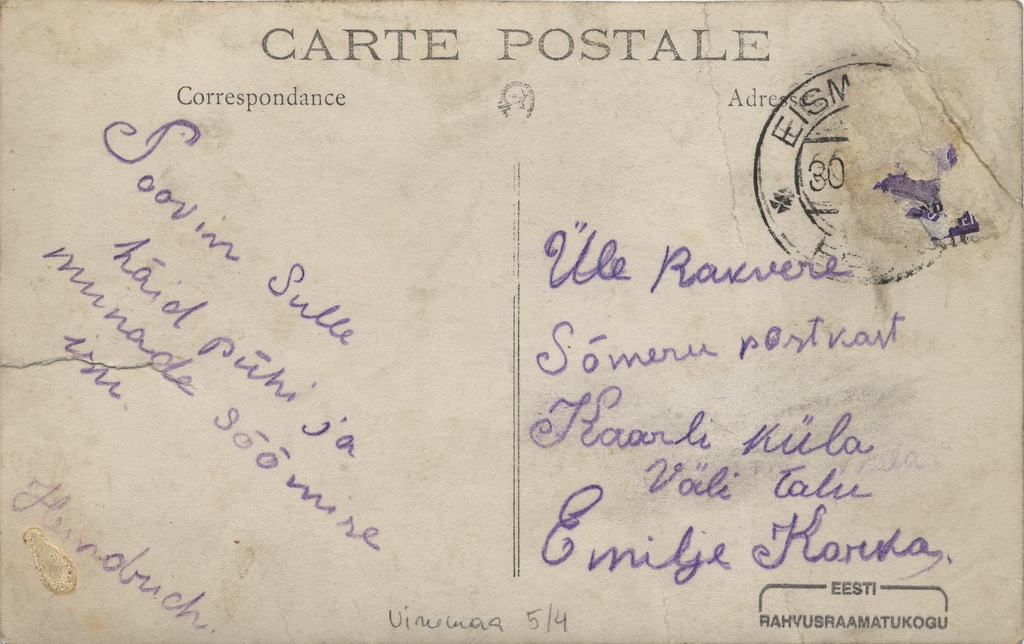 CARTE POSTALE
Correspondance
Adresse
EISM
30
Soovin Sulle
häid pühi ja
munade söömise
isu.
Hendrich.
Üle Rakvere
Sõmeru postkast
Kaarli küla
Väli talu
Emilje Korka.
Virumaa 5/4
EESTI
RAHVUSRAAMATUKOGU